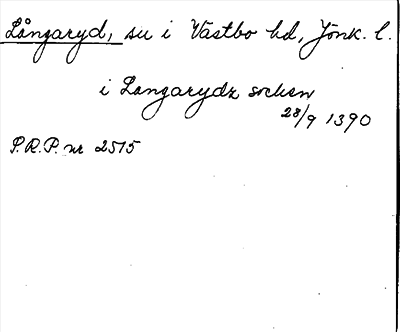 Långaryd, su i Västbo hd, Jönk. l.
i Langarydz socken
28/9 1390
P.R.P. nr 2515